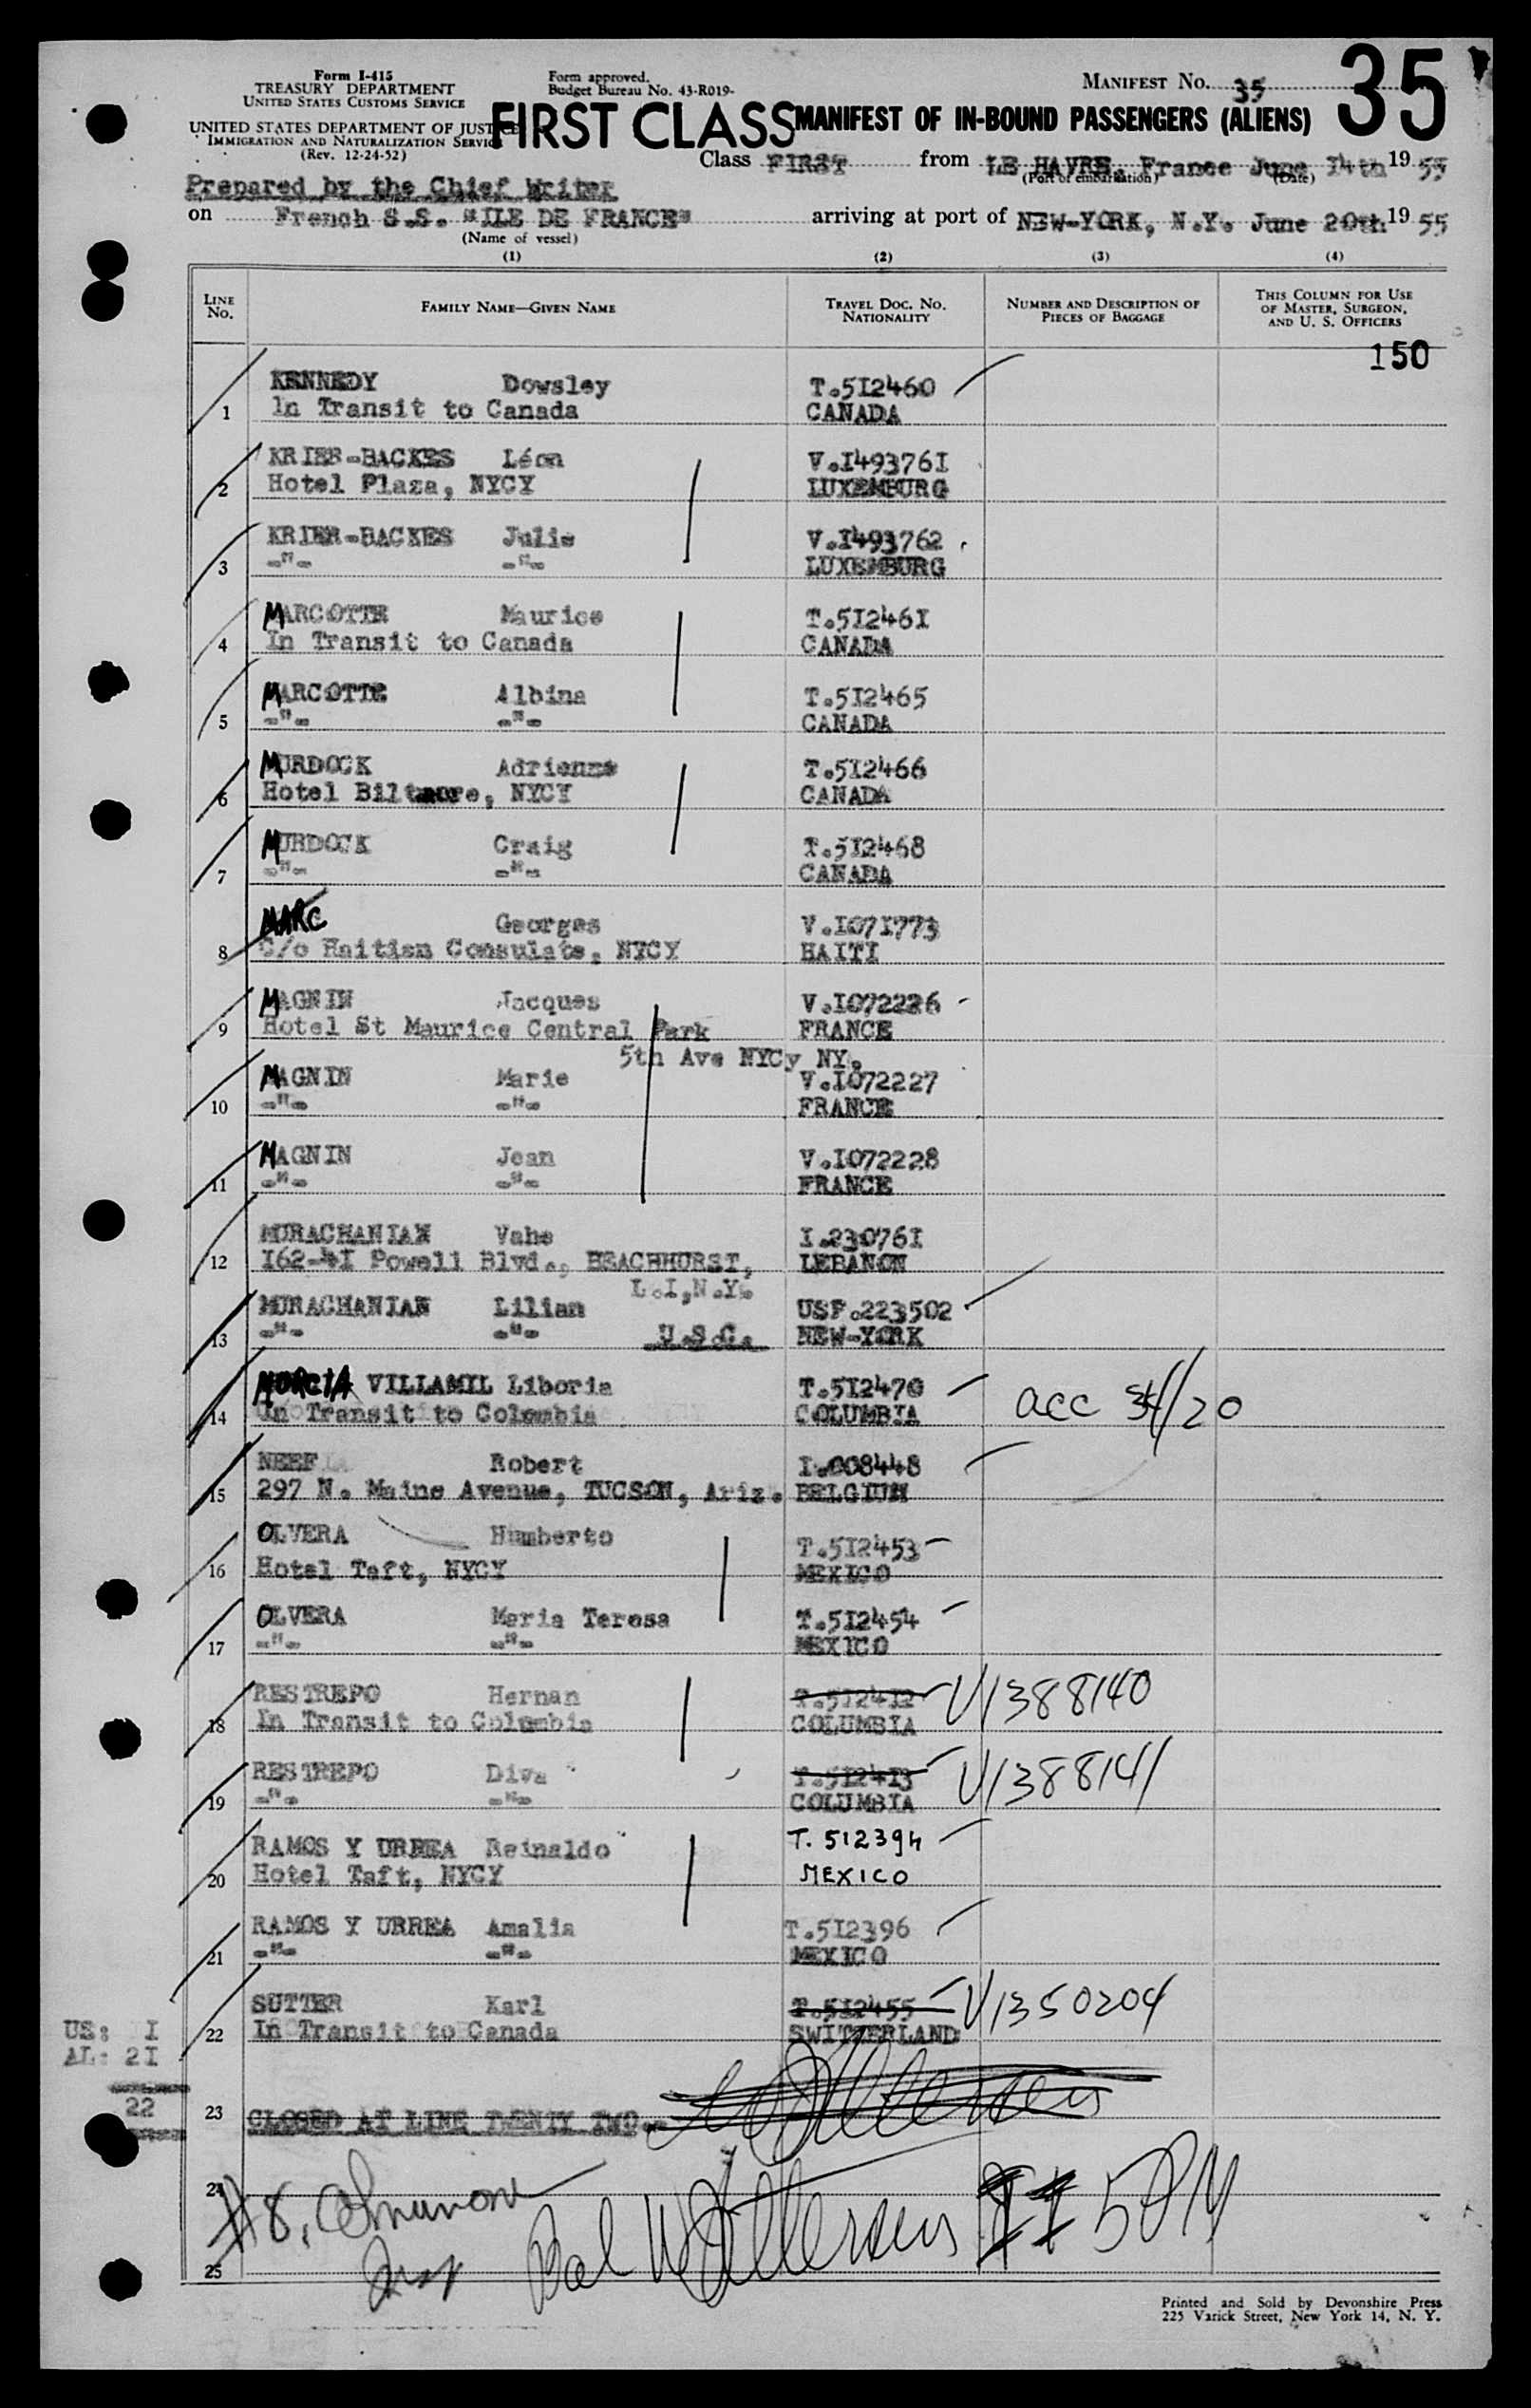 Form I-415
TREASURY DEPARTMENT
UNITED STATES CUSTOMS SERVICE
UNITED STATES DEPARTMENT OF JUSTICE
IMMIGRATION AND NATURALIZATION SERVICE
(Rev. 12-24-52)
Form approved.
Budget Bureau No. 43-R019-
MANIFEST No. 35
35
FIRST CLASS MANIFEST OF IN-BOUND PASSENGERS (ALIENS)
Class FIRST from LE HAVRE, France June 14th 19 55
(Port of embarkation) (Date)
Prepared by the Chief Writer
on French S.S. "ILE DE FRANCE" arriving at port of NEW-YORK, N.Y. June 20th 19 55
(Name of vessel)
(1) (2) (3) (4)
LINE No. FAMILY NAME—GIVEN NAME TRAVEL DOC. NO. NATIONALITY NUMBER AND DESCRIPTION OF PIECES OF BAGGAGE THIS COLUMN FOR USE OF MASTER, SURGEON, AND U. S. OFFICERS
150
KENNEDY Dowsley T.512460
1 In Transit to Canada CANADA
KRIER-BACKES Léon V.1493761
2 Hotel Plaza, NYCY LUXEMBURG
KRIER-BACKES Julie V.1493762
3 -"- -"- LUXEMBURG
MARCOTTE Maurice T.512461
4 In Transit to Canada CANADA
MARCOTTE Albina T.512465
5 -"- -"- CANADA
MURDOCK Adrienne T.512466
6 Hotel Biltmore, NYCY CANADA
MURDOCK Craig T.512468
7 -"- -"- CANADA
MARC Georges V.1071773
8 C/o Haitian Consulate, NYCY HAITI
MAGNIN Jacques V.1072226
9 Hotel St Maurice Central Park FRANCE
5th Ave NYCy NY.
MAGNIN Marie V.1072227
10 -"- -"- FRANCE
MAGNIN Jean V.1072228
11 -"- -"- FRANCE
MURACHANIAN Vahe I.230761
12 162-41 Powell Blvd., BEACHHURST, LEBANON
L.I,N.Y.
MURACHANIAN Lilian USP.223502
13 -"- -"- U.S.C. NEW-YORK
MORCIA VILLAMIL Liboria T.512470
14 In Transit to Colombia COLUMBIA acc 34/20
NEEF Robert I.008448
15 297 N. Maine Avenue, TUCSON, Ariz. BELGIUM
OLVERA Humberto T.512453
16 Hotel Taft, NYCY MEXICO
OLVERA Maria Teresa T.512454
17 -"- -"- MEXICO
RESTREPO Hernan T.512412 V1388140
18 In Transit to Colombia COLUMBIA
RESTREPO Diva T.512413 V1388141
19 -"- -"- COLUMBIA
RAMOS Y URREA Reinaldo T. 512394
20 Hotel Taft, NYCY MEXICO
RAMOS Y URREA Amalia T.512396
21 -"- -"- MEXICO
SUTTER Karl T.512455 V1350204
22 In Transit to Canada SWITZERLAND
US: 1
AL: 21
22
23 CLOSED AT LINE TWENTY TWO.-
24
#8,
5 PM
25
Printed and Sold by Devonshire Press
225 Varick Street, New York 14, N. Y.